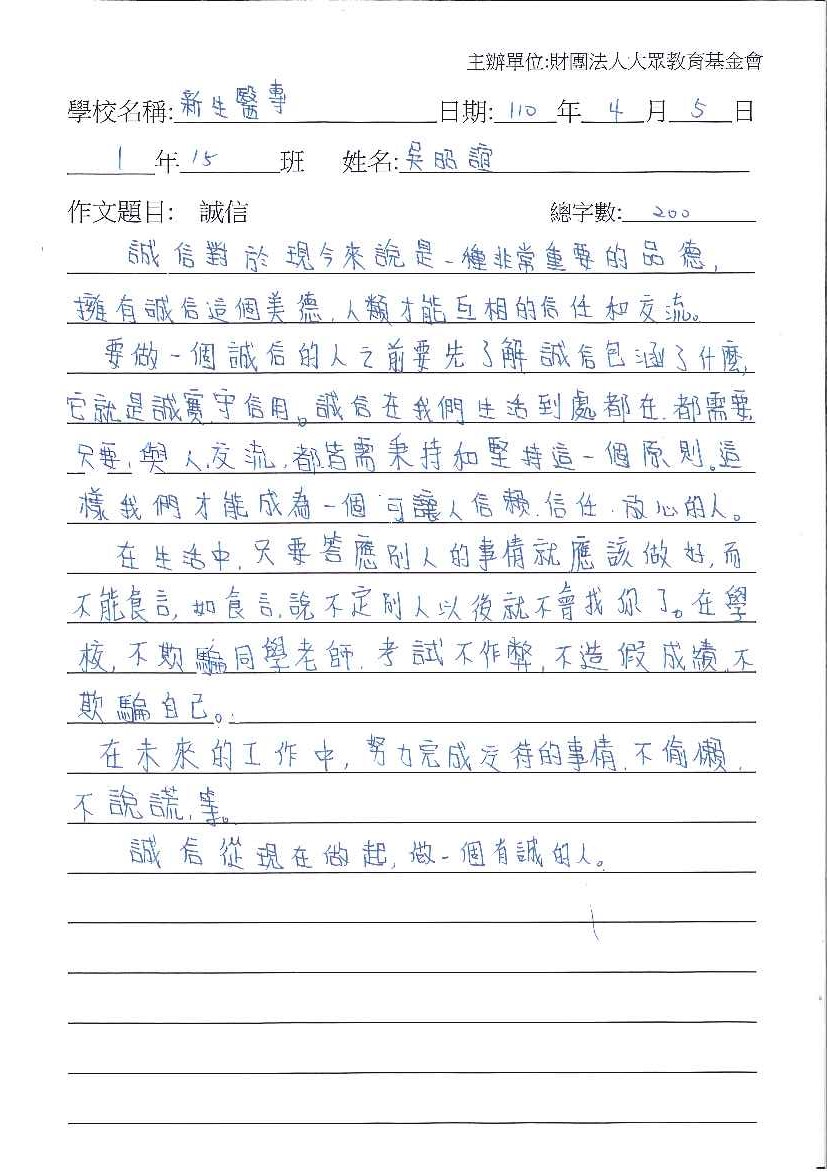 主辦單位:財團法人大眾教育基金會
學校名稱: 新生醫專 日期: 110 年 4 月 5 日
1 年 15 班 姓名: 吳昭誼
作文題目: 誠信 總字數: 200
誠信對於現今來說是一種非常重要的品德,
擁有誠信這個美德,人類才能互相的信任和交流。
要做一個誠信的人之前要先了解誠信包涵了什麼,
它就是誠實、守信用。誠信在我們生活到處都在,都需要,
只要,與人交流,都皆需秉持和堅持這一個原則。這
樣我們才能成為一個可讓人信賴、信任、放心的人。
在生活中,只要答應別人的事情就應該做好,而
不能食言,如食言,說不定別人以後就不會找你了。在學
校,不欺騙同學老師,考試不作弊,不造假成績,不
欺騙自己。
在未來的工作中,努力完成交待的事情,不偷懶,
不說謊,等。
誠信從現在做起,做一個有誠的人。